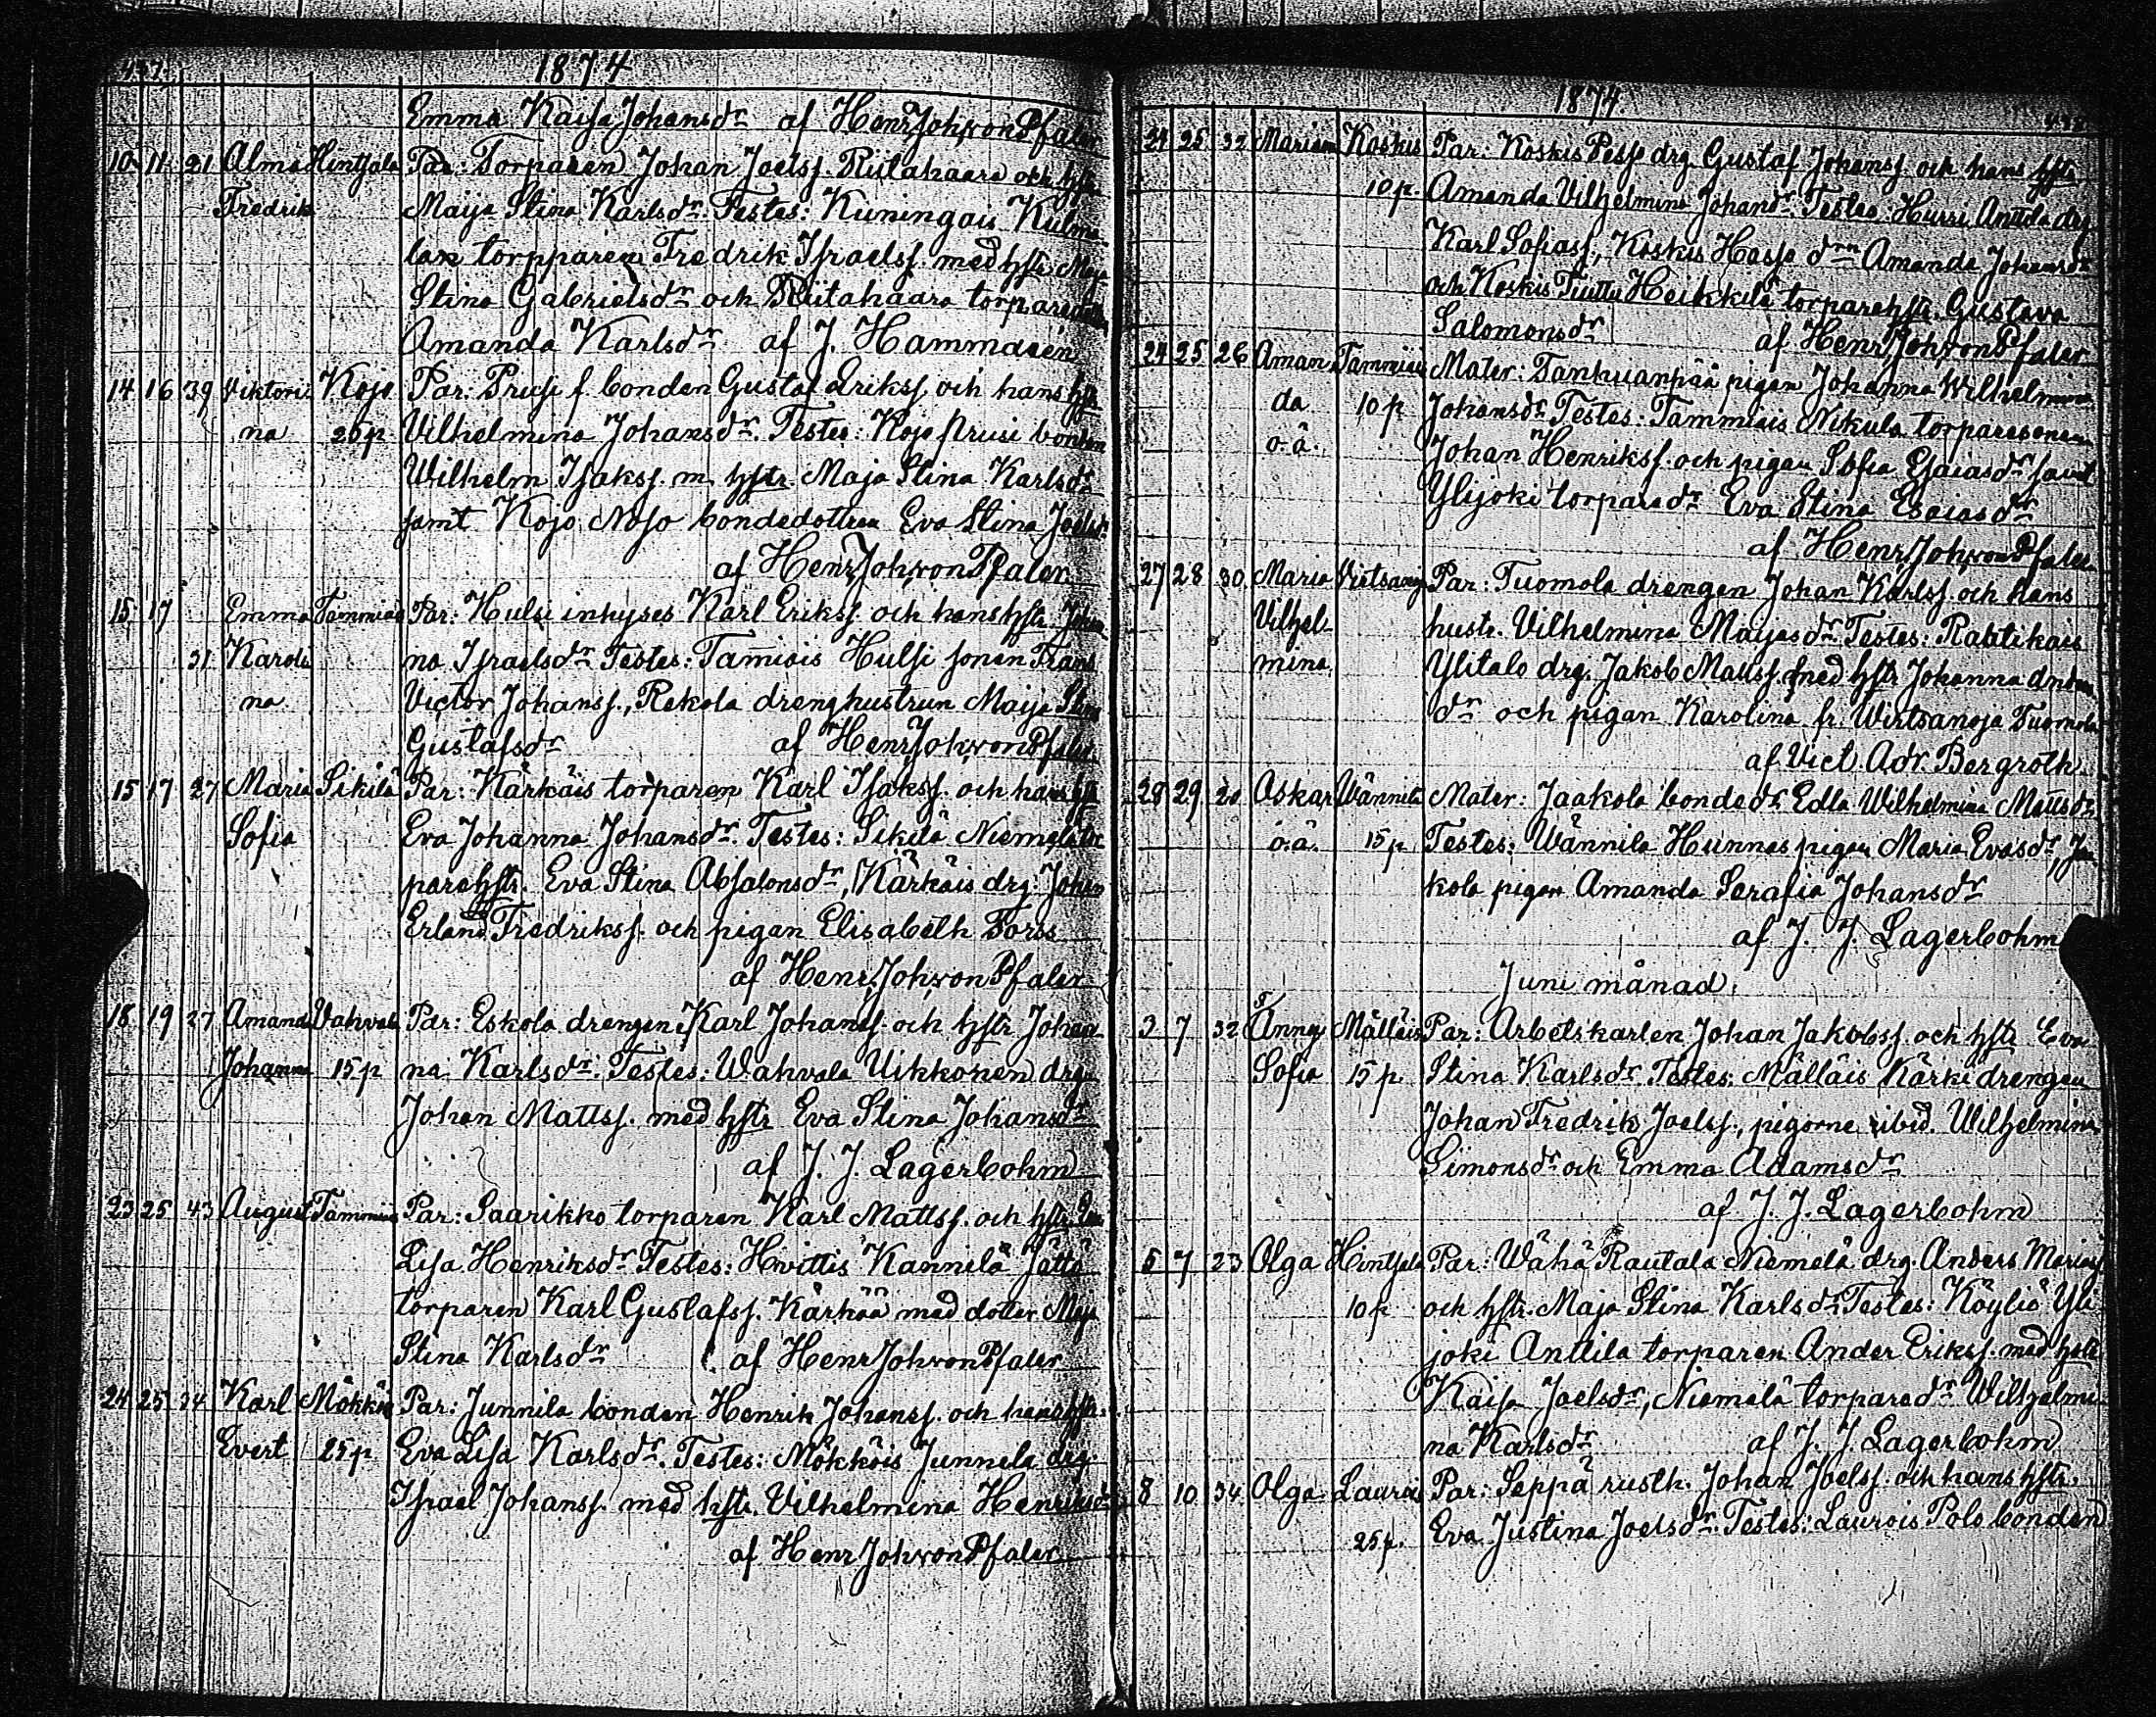 437
1874
Emma Kaisa Johansdr af Henr Joh von Pfaler
10 11 21 Alma Hintsala Par: Torparen Johan Joelsf. Riitahaara och hstr
Fredrik Maija Stina Karlsdr. Testes: Kuningois Kulma
lan torpparen Fredrik Israelsf. med hstr Maja
Stina Gabrielsdr och Riitahaara torparedottr
Amanda Karlsdr af J. Hammaren
14 16 39 Viktori Kojo Par: Prusi f. bonden Gustaf Eriksf. och hans hstr
na 20p Vilhelmina Johansdr. Testes: Kojo Prusi bonden
Wilhelm Isaksf. m. hstr. Maja Stina Karlsdr
samt Kojo Noso bondedottren Eva Stina Joelsdr
af Henr Joh von Pfaler
15 17 Emma Tammiais Par: Hulsi inhyses Karl Eriksf. och hans hstr Johan
31 Karoli na Israelsdr Testes: Tamiois Hulsi sonen Frans
na Victor Johansf., Rekola drenghustrun Maija Stina
Gustafsdr af Henr Joh von Pfaler
15 17 27 Maria Sikilä Par: Kärkäis torparen Karl Isaksf. och hans hstr
Sofia Eva Johanna Johansdr. Testes: Sikilä Niemelä tor
parehstr. Eva Stina Absalonsdr, Kärkäis drg. Johan
Erland Fredriksf. och pigan Elisabeth Forss
af Henr Joh von Pfaler
18 19 27 Amanda Vahvala Par: Eskola drengen Karl Johansf. och hstr Johan
Johanna 15p na Karlsdr. Testes: Wahvala Uikkonen drg.
Johan Mattsf. med hstr Eva Stina Johansdr
af J. J. Lagerbohm
23 25 43 August Tammiais Par: Saarikko torparen Karl Mattsf. och hstr Eva
Lisa Henriksdr Testes: Hvittis Kannilä Jättä
torparen Karl Gustafsf. Kärkää med dotter Maja
Stina Karlsdr af Henr Joh von Pfaler
24 25 34 Karl Mökköis Par: Junnila bonden Henrik Johansf. och hans hstr.
Evert 25p Eva Lisa Karlsdr. Testes: Mökköis Junnela drg.
Israel Johansf. med hstr. Vilhelmina Henriksdr
af Henr Joh von Pfaler
1874
438
24 25 32 Mariam Koskis Par: Koskis Pesse drg Gustaf Johansf. och hans hstr
10p. Amanda Vilhelmina Johansdr. Testes: Hurri Anttila drg.
Karl Sofiasf., Koskis Hassa drn Amanda Johansdr
och Koskis Tuttu Heikkilä torparehstr. Gustava
Salomonsdr af Henr Joh von Pfaler
24 25 26 Aman Tammiais Mater: Tanhuanpää pigan Johanna Wilhelmina
da 10p Johansdr. Testes: Tammiais Nikula torparesonen
o.ä. Johan Henriksf. och pigan Sofia Esaiasdr samt
Ylijoki torparedr Eva Stina Esaiasdr
af Henr Joh von Pfaler
27 28 30 Maria Virtsanoja Par: Tuomola drengen Johan Karlsf. och hans
Vilhel hustr. Vilhelmina Mayasdr. Testes: Raatikais
mina Ylitalo drg. Jakob Mattsf. med hstr Johanna
dr och pigan Karolina fr. Wirtsanoja Tuomola
af Vict. Adr. Bergroth.
28 29 20 Oskar Wännilä Mater: Jaakola bondedr. Edla Wilhelmina Mattsdr
o.ä. 15p Testes: Wännila Hunnas pigan Maria Evasdr, Jaa
kola pigan Amanda Serafia Johansdr
af J. J. Lagerbohm
Juni månad.
3 7 32 Anna Mälläis Par: Arbetskarlen Johan Jakobsf. och hstr Eva
Sofia 15p Stina Karlsdr. Testes: Mälläis Kärki drengen
Johan Fredrik Joelsf., pigorne ibid. Wilhelmina
Simonsdr och Emma Adamsdr
af J. J. Lagerbohm
5 7 23 Olga Hintsala Par: Wähä Rautala Niemelä drg. Anders Mariasf.
10p och hstr. Maja Stina Karlsdr. Testes: Köyliö Yli
joki Anttila torparen Ander Eriksf. med hstr
Kaisa Joelsdr, Niemelä torparedr Wilhelmi
na Karlsdr af J. J. Lagerbohm
8 10 34 Olga Laurois Par: Seppä rusth. Johan Joelsf. och hans hstr.
25p. Eva Justina Joelsdr. Testes: Laurois Polo bonden